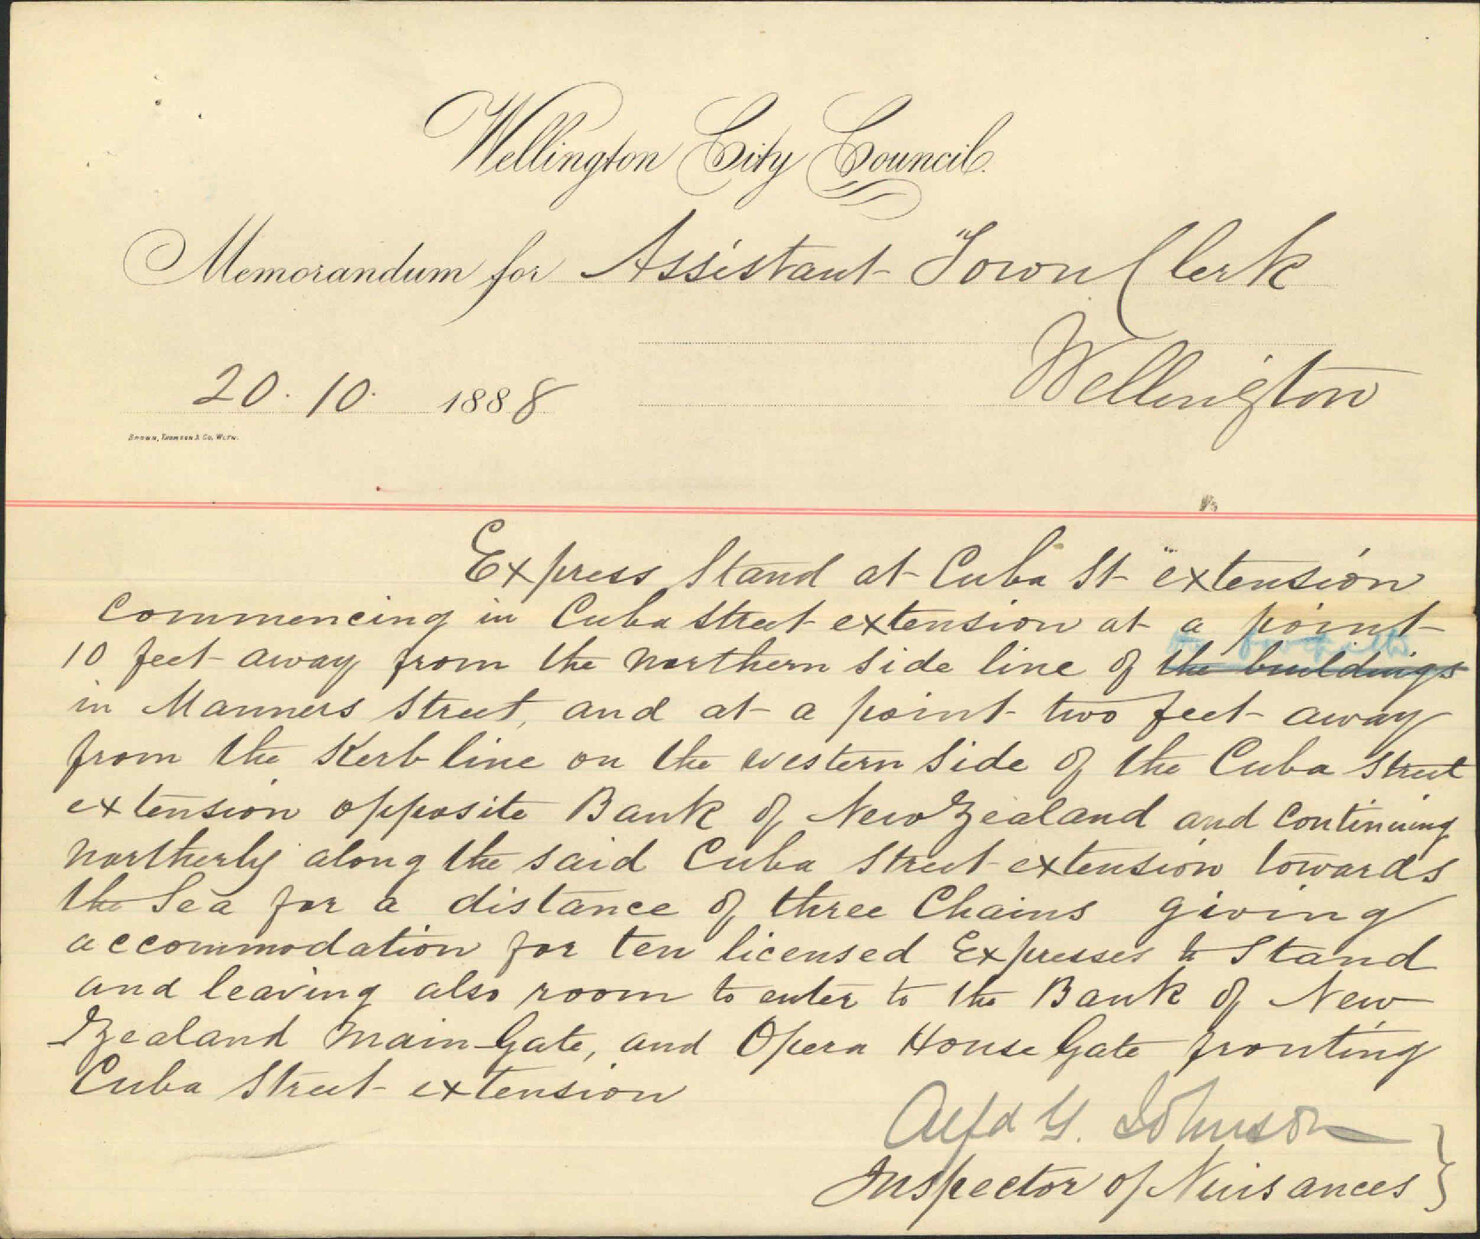 Wellington City Council.
Memorandum for Assistant Town Clerk
Wellington
20. 10. 1888
Brown, Thomson & Co, Wgtn.
Express Stand at Cuba St extension
Commencing in Cuba Street extension at a point
10 feet away from the northern side line of the buildings
in Manners Street, and at a point two feet away
from the Kerb line on the western side of the Cuba Street
extension opposite Bank of New Zealand and continuing
northerly along the said Cuba Street extension towards
the Sea for a distance of three Chains giving
accommodation for ten licensed Expresses to Stand
and leaving also room to enter to the Bank of New
Zealand Main Gate, and Opera House Gate fronting
Cuba Street extension
Alfd G. Johnson
Inspector of Nuisances